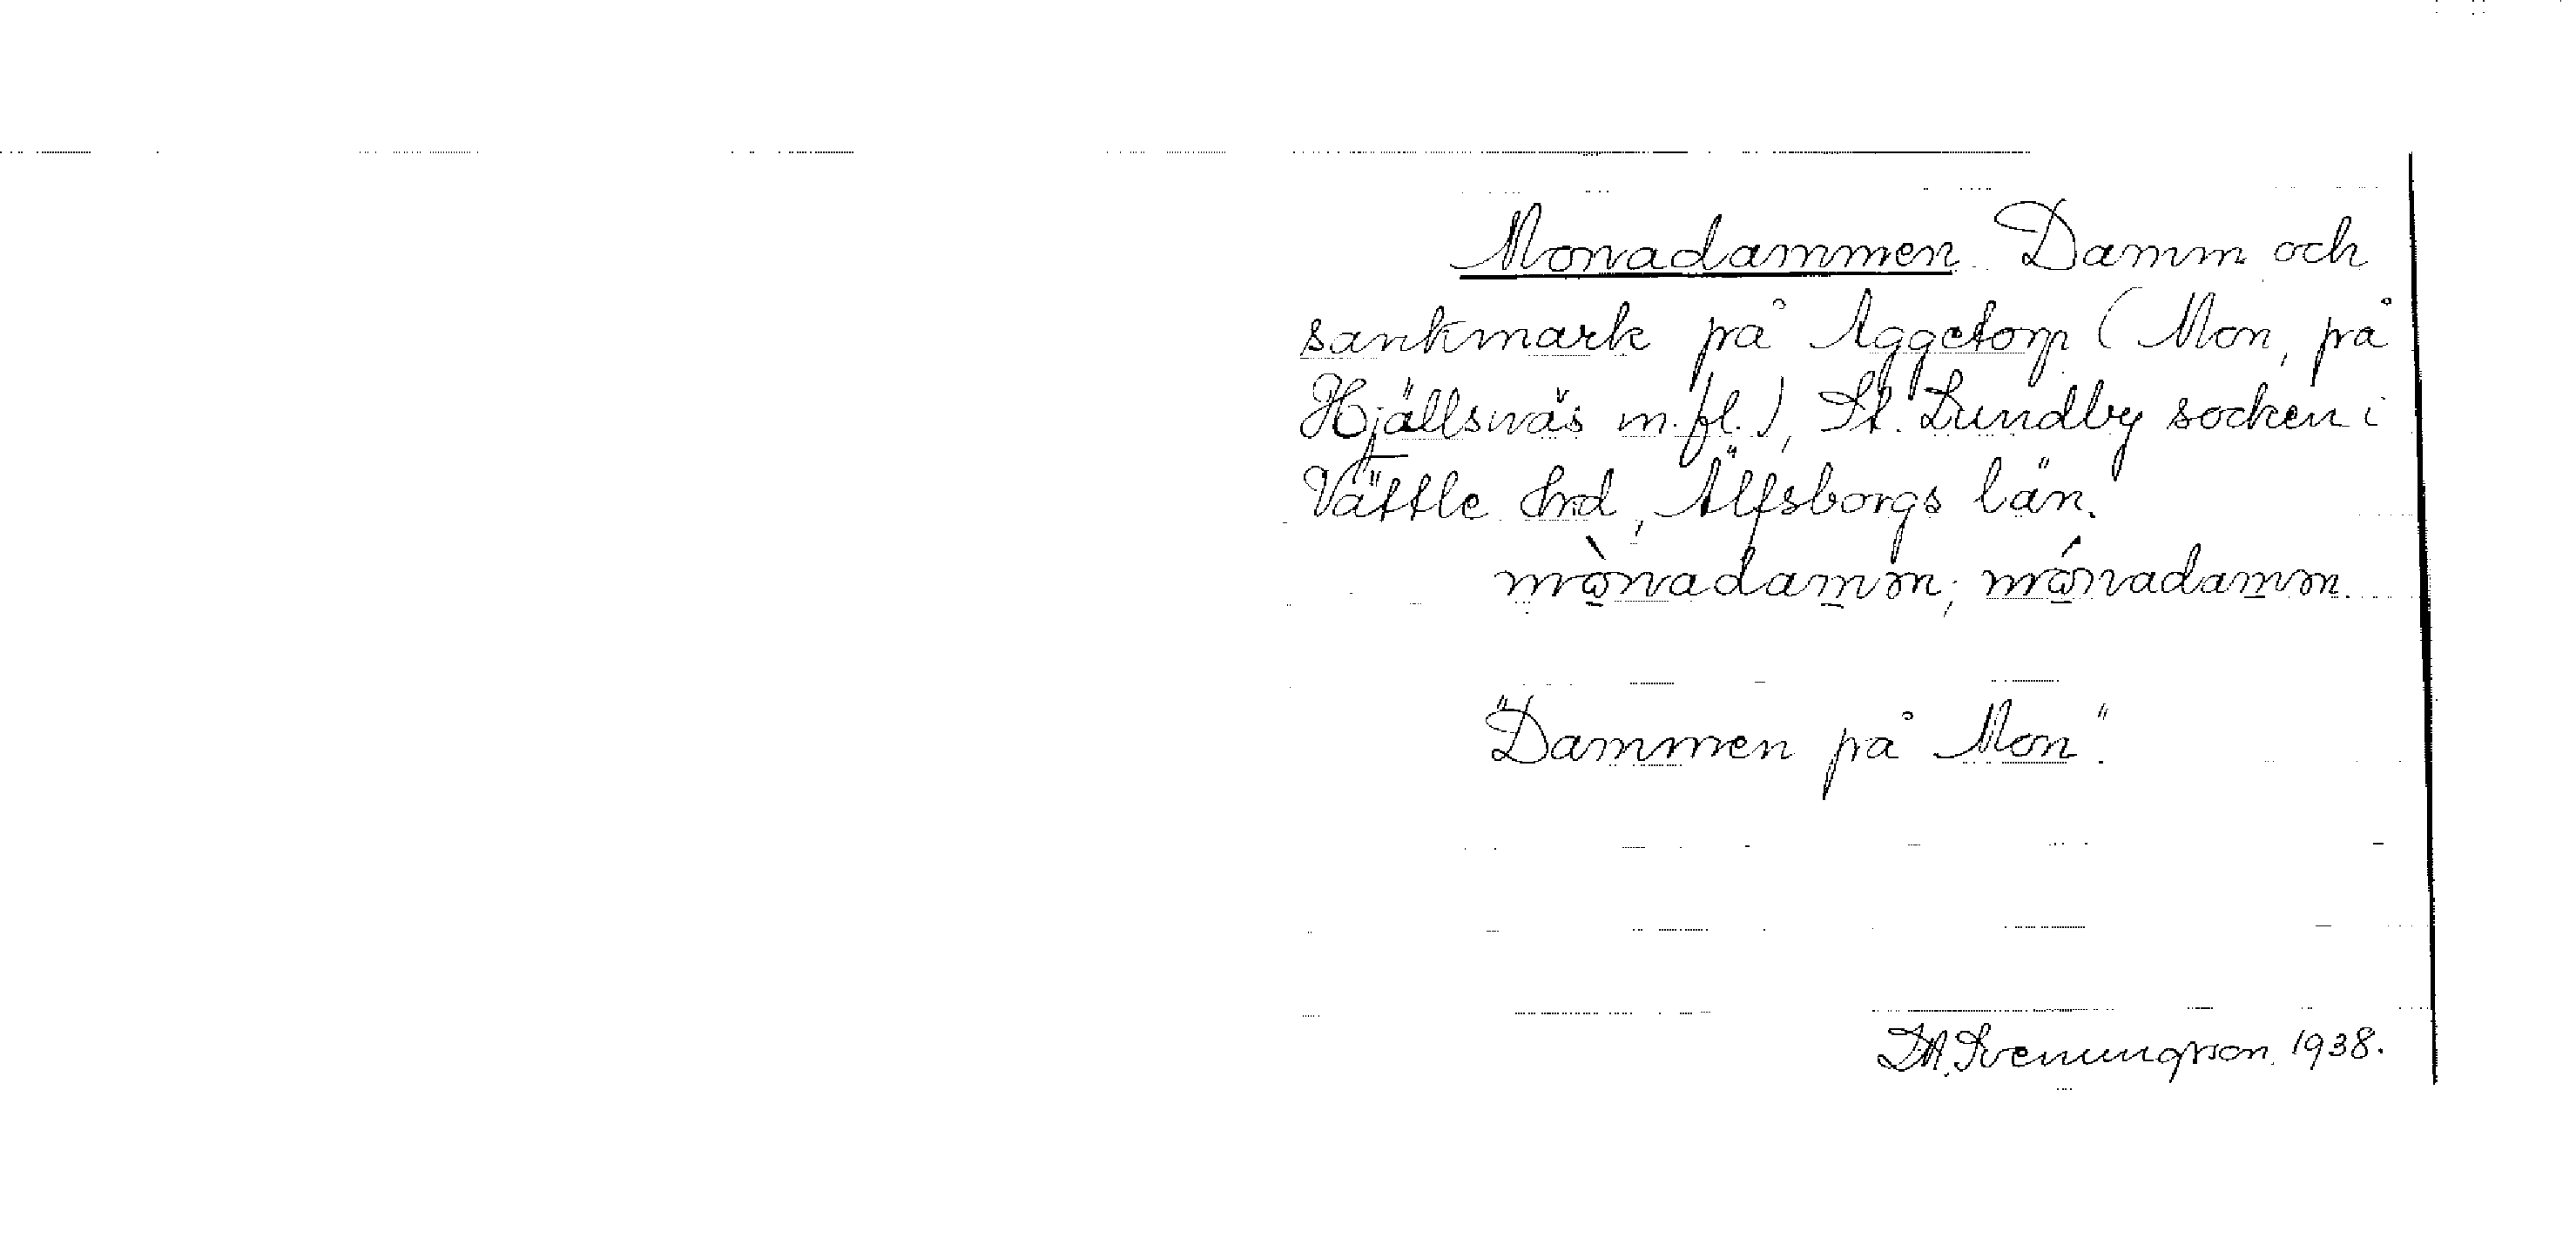 Monadammen. Damm och
sankmark på Aggetorp (Mon, på
Hjällsnäs m.fl.), St. Lundby socken i
Vättle hrd, Älfsborgs län.
mònadamən; mónadamən.
"Dammen på Mon".
Svenungsson. 1938.